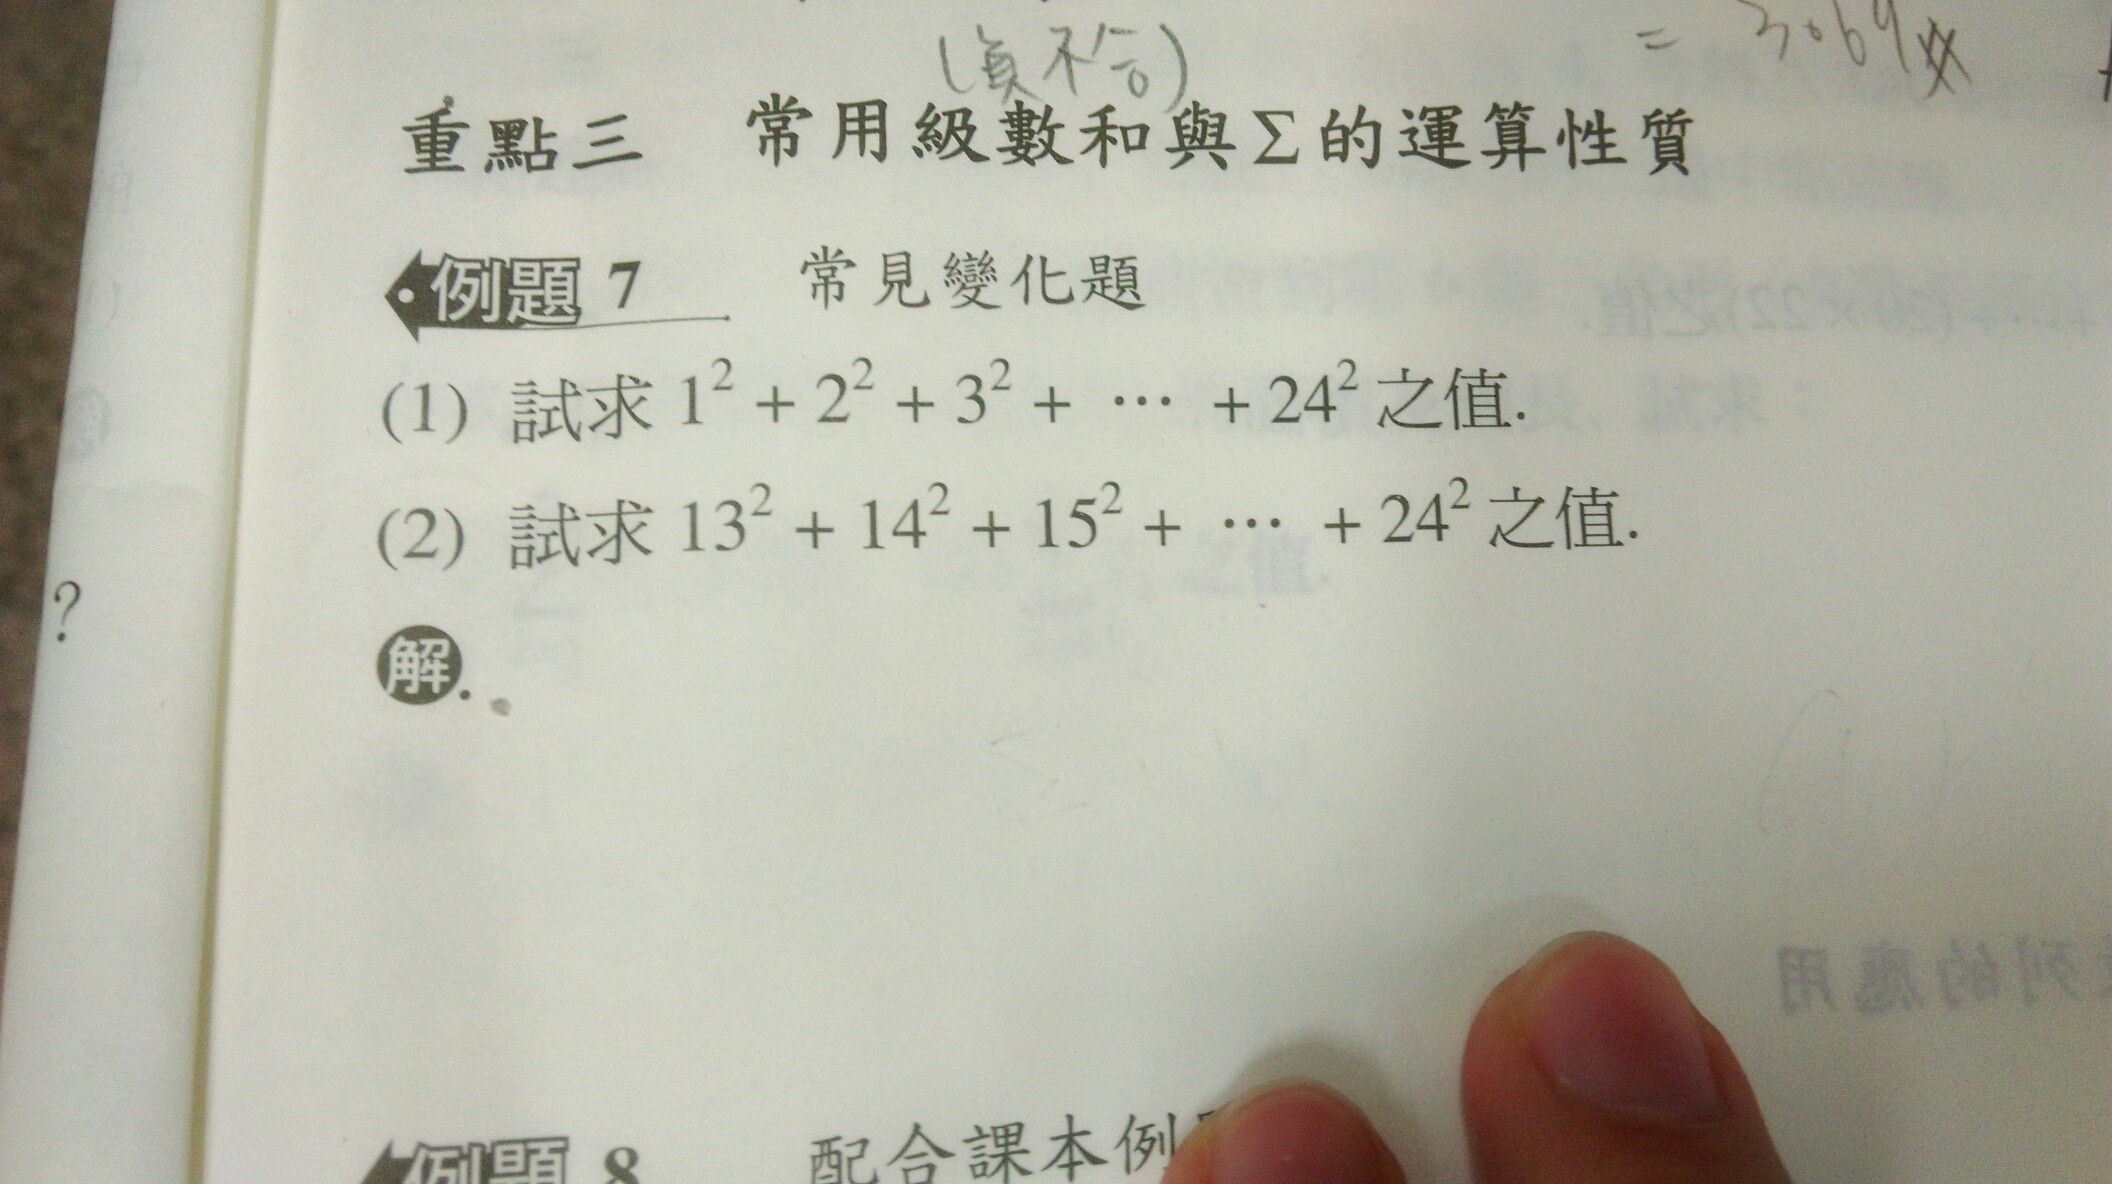 (負不合)
= 3.69
重點三 常用級數和與Σ的運算性質
例題 7 常見變化題
(1) 試求 1² + 2² + 3² + ⋯ + 24² 之值.
(2) 試求 13² + 14² + 15² + ⋯ + 24² 之值.
?
解
例題 8 配合課本例